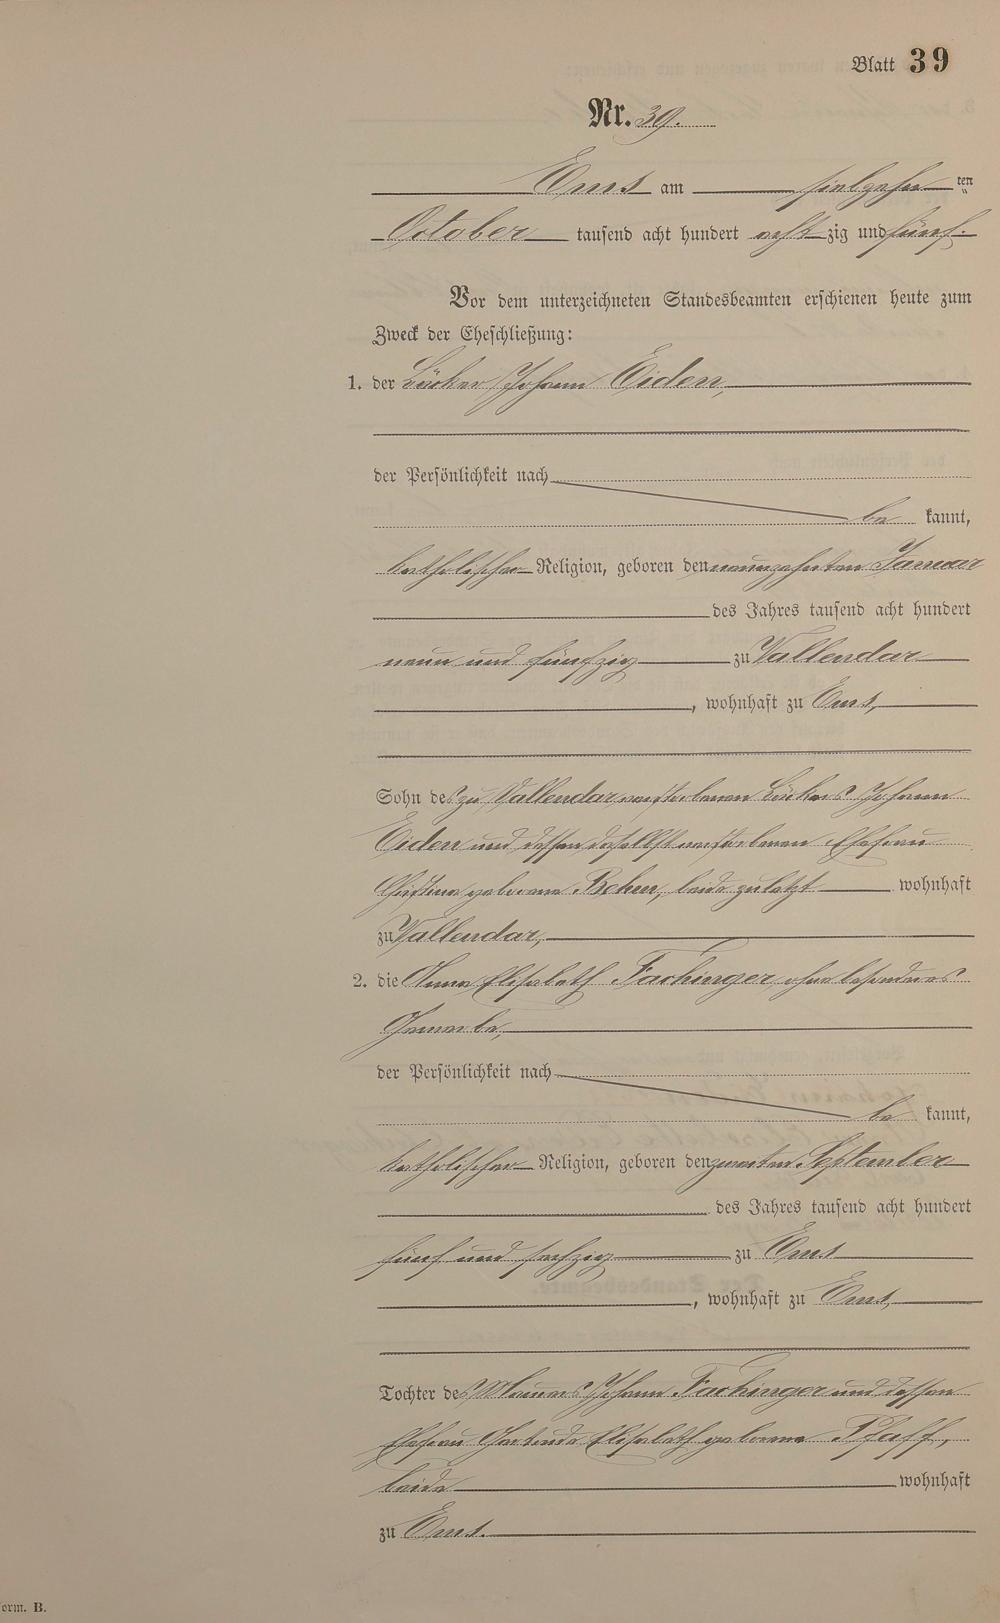 Blatt 39
Nr. 39.
Ems am siebzehnten
October tausend acht hundert achtzig und fünf.
Vor dem unterzeichneten Standesbeamten erschienen heute zum
Zweck der Eheschließung:
1. der Bäcker Johann Eiden,
der Persönlichkeit nach
be kannt,
katholischer Religion, geboren den neunzehnten Januar
des Jahres tausend acht hundert
neun und fünfzig zu Vallendar
, wohnhaft zu Ems,
Sohn des zu Vallendar verstorbenen Bäckers Johann
Eiden und dessen daselbst verstorbenen Ehefrau
Christina geborene, beide zuletzt wohnhaft
zu Vallendar,
2. die Anna Elisabeth Fachinger, ohne besonderes
Gewerbe,
der Persönlichkeit nach
be kannt,
katholischer Religion, geboren den zweiten September
des Jahres tausend acht hundert
fünf und sechzig zu Ems
, wohnhaft zu Ems,
Tochter des Maurers Johann Fachinger und dessen
Ehefrau Gertrude Elisabeth geborene Pfaff,
beide wohnhaft
zu Ems.
orm. B.